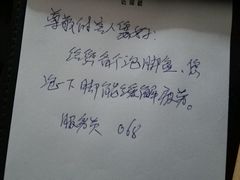 尊敬的客人您好:
给您备个泡脚盆,您
泡一下脚能缓解疲劳。
服务员 068